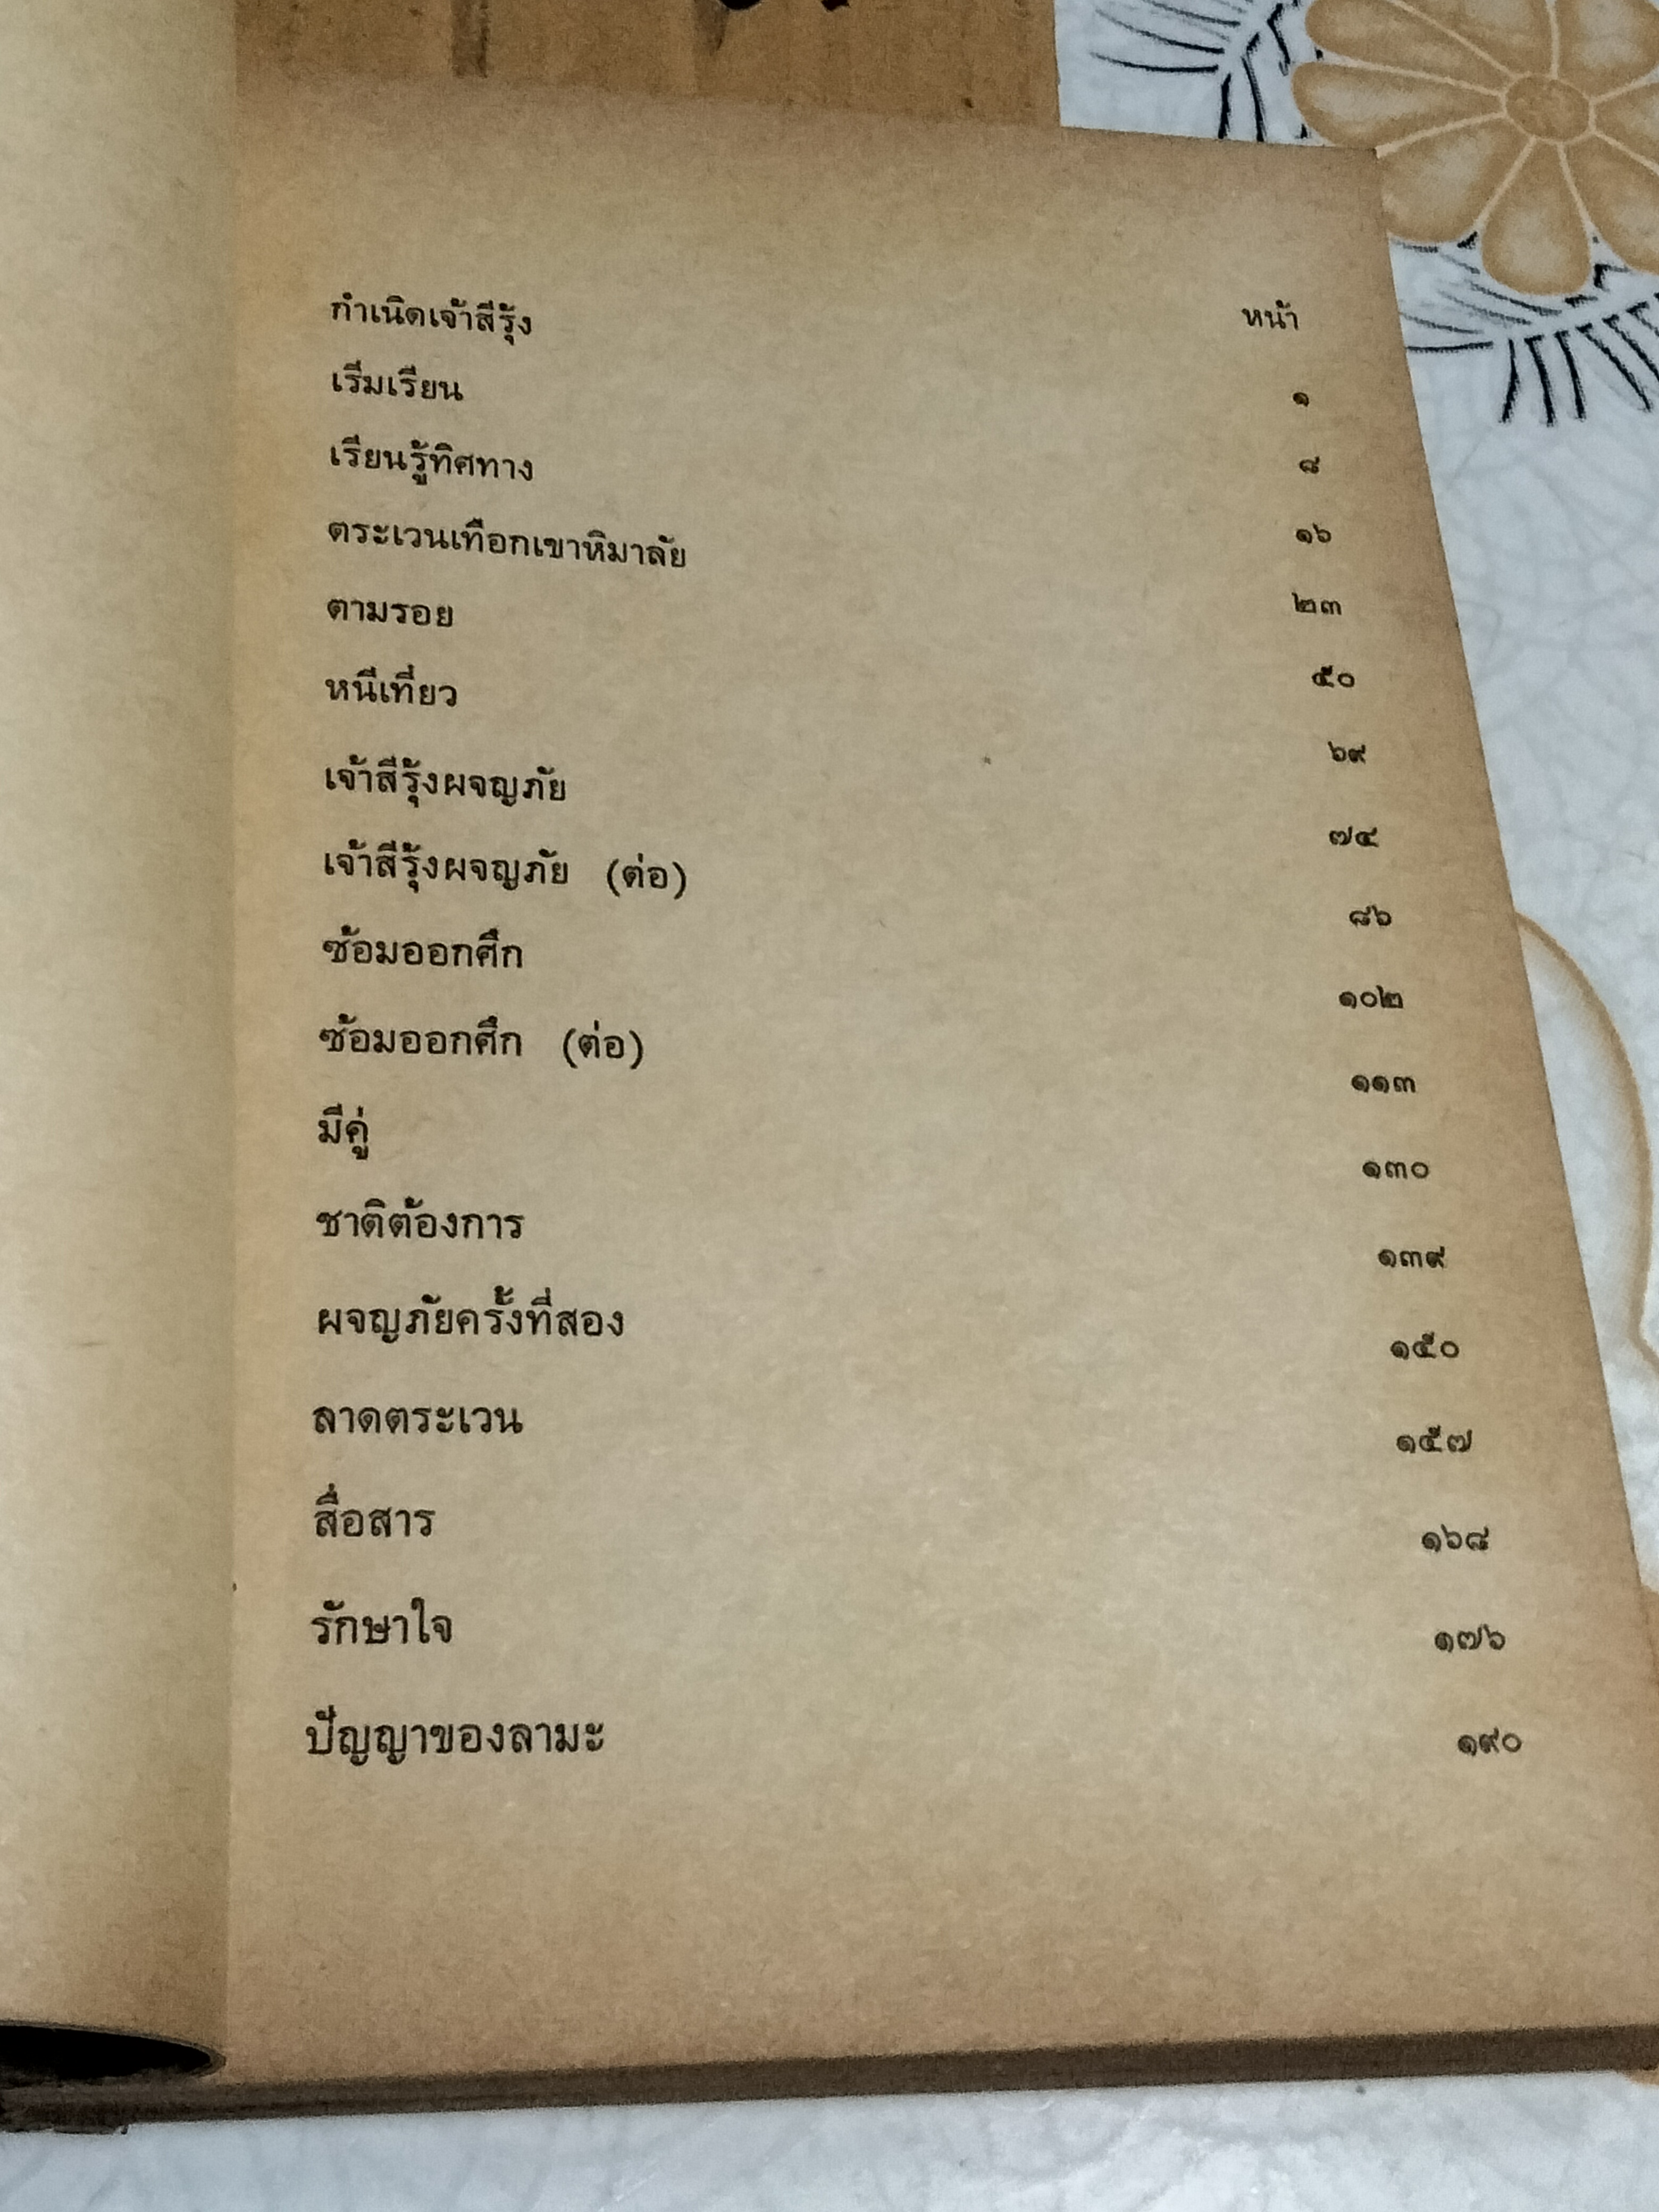 กำเนิดเจ้าสีรุ้ง หน้า
เริ่มเรียน ๑
เรียนรู้ทิศทาง ๘
ตระเวนเทือกเขาหิมาลัย ๑๖
ตามรอย ๒๓
หนีเที่ยว ๕๐
เจ้าสีรุ้งผจญภัย ๖๙
เจ้าสีรุ้งผจญภัย (ต่อ) ๗๔
ซ้อมออกศึก ๘๖
ซ้อมออกศึก (ต่อ) ๑๐๒
มีคู่ ๑๑๓
ชาติต้องการ ๑๓๐
ผจญภัยครั้งที่สอง ๑๓๙
ลาดตระเวน ๑๕๐
สื่อสาร ๑๕๗
รักษาใจ ๑๖๘
ปัญญาของลามะ ๑๗๖
๑๙๐